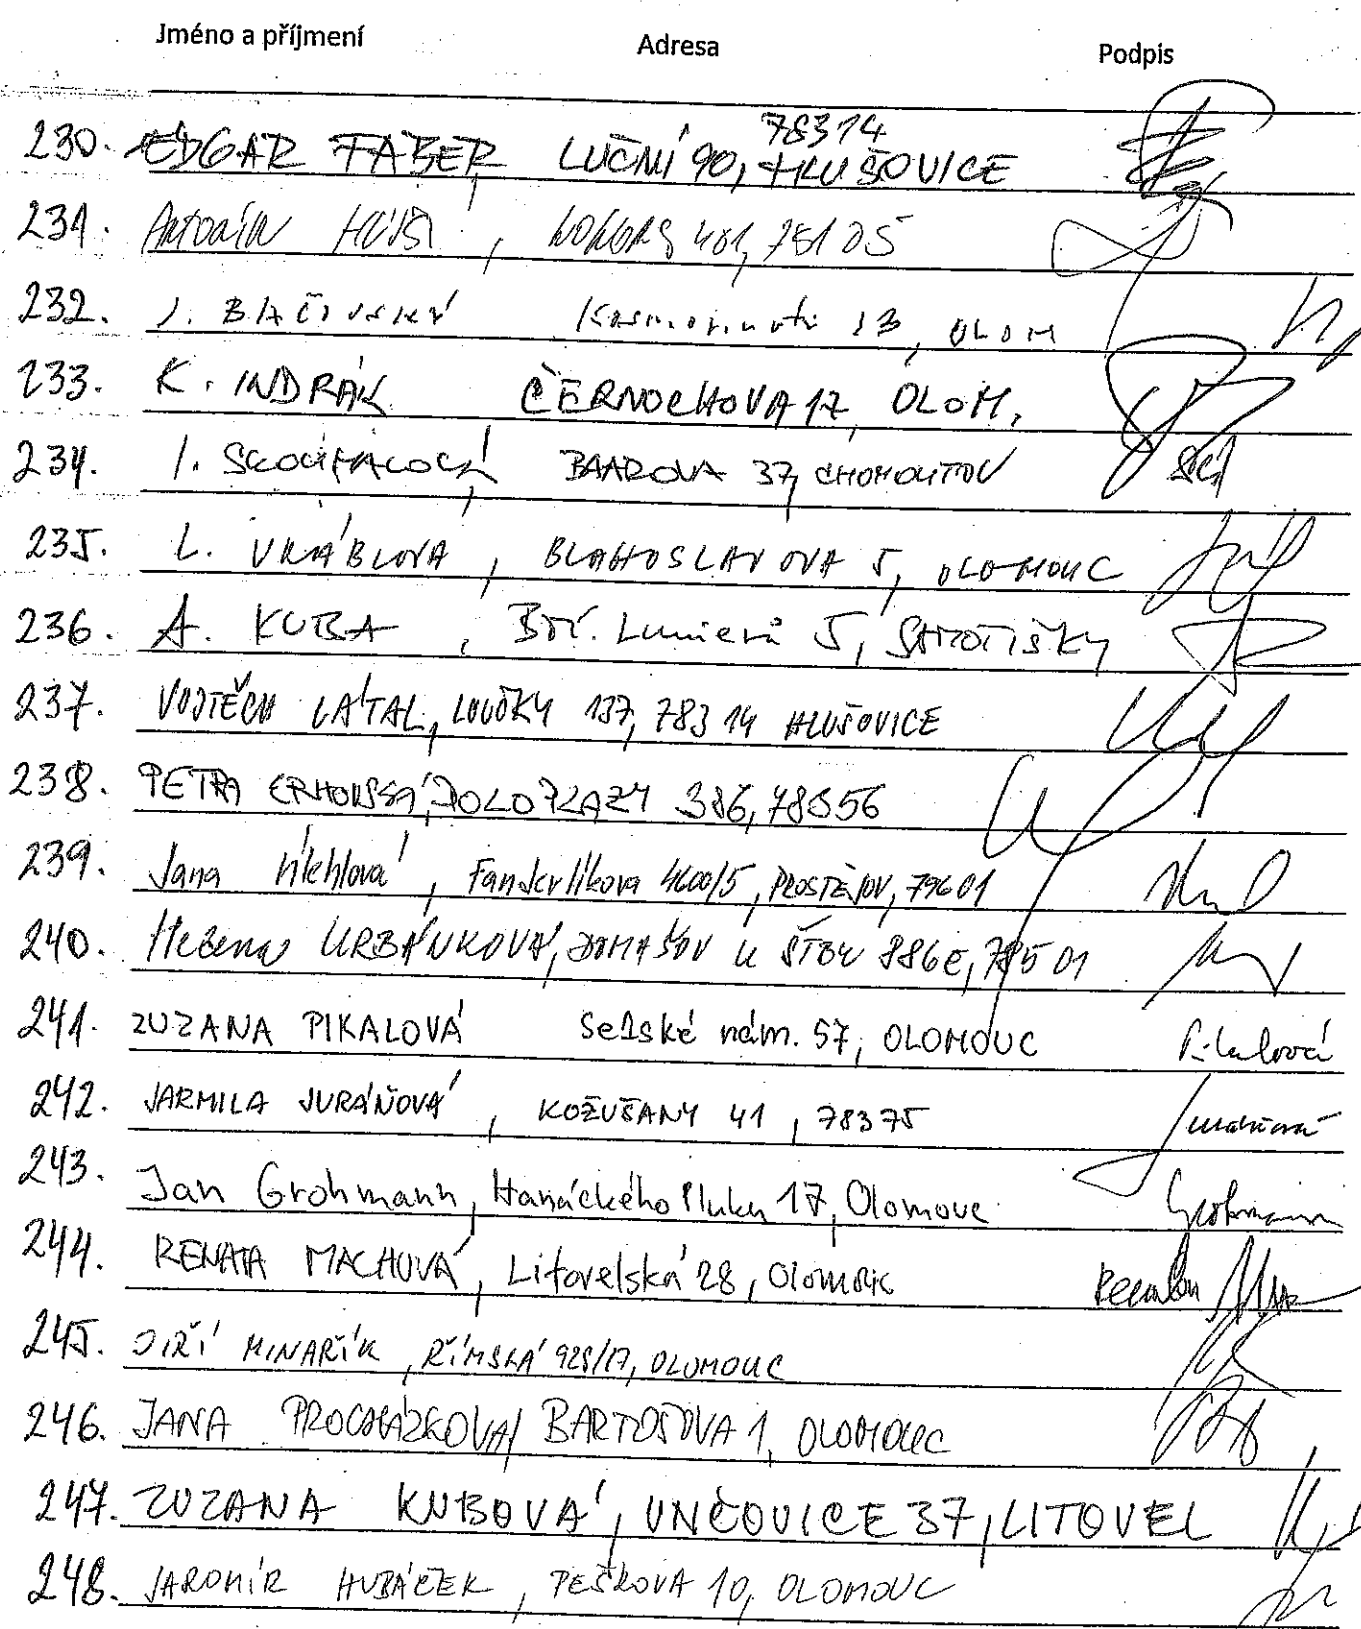 Jméno a příjmení Adresa Podpis
230. EDGAR FABER, LUČNÍ 90, 78314 HLUŠOVICE
231. Antonín, KOKORY 401, 751 05
232. J. BAČOVSKÝ 13, OLOM
233. K. INDRÁK ČERNOCHOVA 17, OLOM.
234. BAAROVA 37, CHOMOUTOV
235. L. VRÁBLOVÁ, BLAHOSLAVOVA 5, OLOMOUC
236. A. KUBA, Bří. Lumierů 5, SAMOTIŠKY
237. VOJTĚCH LÁTAL, LOUČKY 137, 783 14 HLUŠOVICE
238. PETRA DOLOPLAZY 386, 78356
239. Jana, Fanderlíkova 4600/5, PROSTĚJOV, 79601
240. Helena URBÁNKOVÁ, DOMAŠOV U ŠTBK 886e, 785 01
241. ZUZANA PIKALOVÁ Selské nám. 57, OLOMOUC Pikalová
242. JARMILA JURÁŇOVÁ, KOŽUŠANY 41, 78375
243. Jan Grohmann, Hanáckého Pluku 17, Olomouc Grohmann
244. RENATA MACHUVÁ, Litovelská 28, Olomouc
245. JIŘÍ MINAŘÍK, ŘÍMSKÁ 928/17, OLOMOUC
246. JANA PROCHÁZKOVÁ, BARTOŠOVA 1, OLOMOUC
247. ZUZANA KUBOVÁ, UNČOVICE 37, LITOVEL
248. JAROMÍR HUBÁČEK, PEŠKOVA 10, OLOMOUC